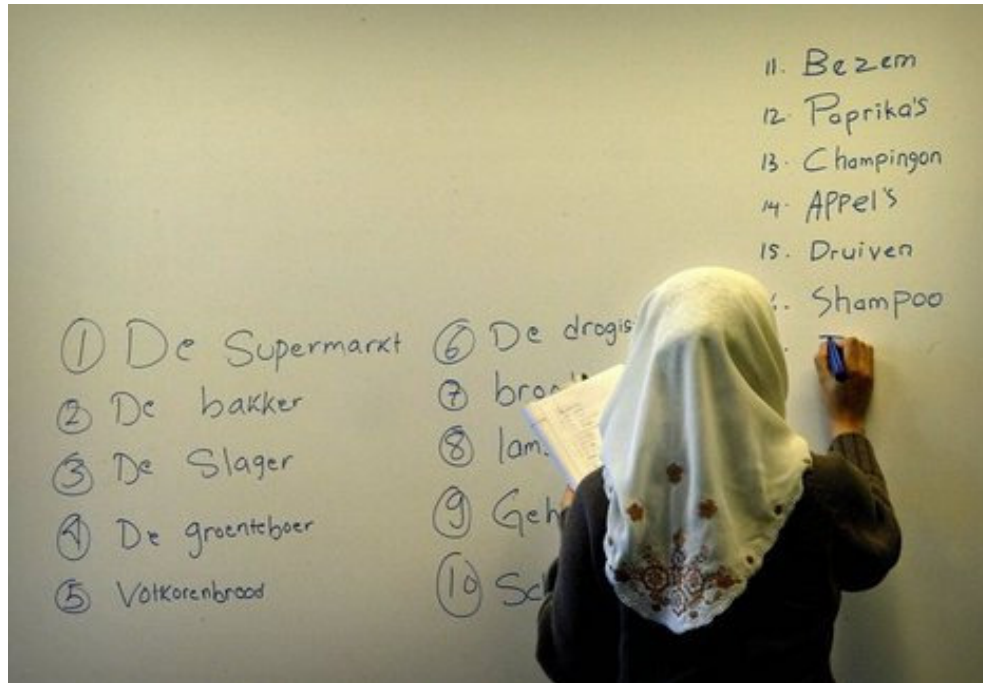 ① De Supermarkt
② De bakker
③ De Slager
④ De groenteboer
⑤ Volkorenbrood
⑥ De
⑦
⑧
⑨
⑩
11. Bezem
12. Paprika's
13. Champingon
14. APPel's
15. Druiven
Shampoo